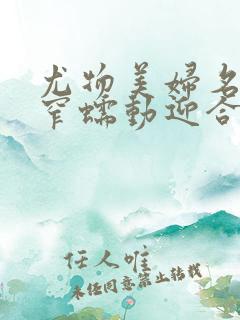 尤物美婦名
窄蠕動迎合
任人唯
未经同意禁止转载